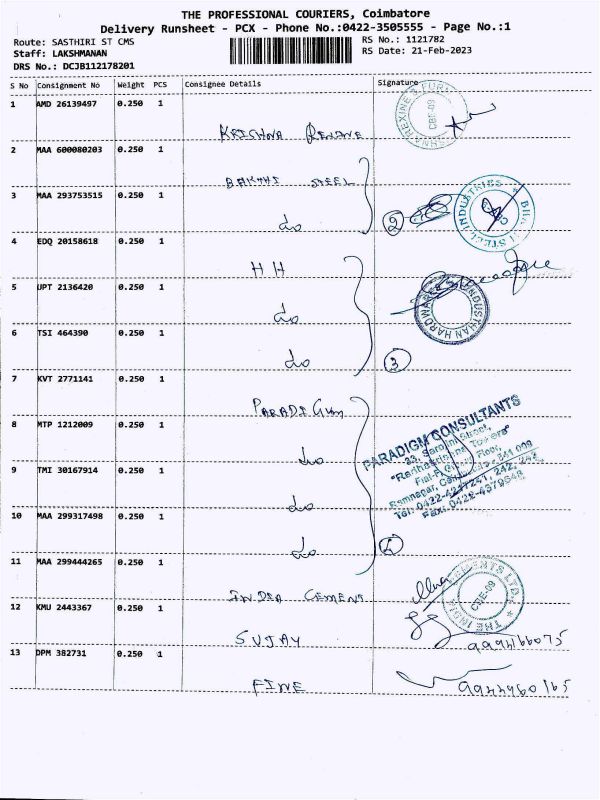 THE PROFESSIONAL COURIERS, Coimbatore
Delivery Runsheet - PCX - Phone No.:0422-3505555 - Page No.:1
Route: SASTHIRI ST CMS
RS No.: 1121782
Staff: LAKSHMANAN
RS Date: 21-Feb-2023
DRS No.: DCJB112178201
S No Consignment No Weight PCS Consignee Details Signature
1 AMD 26139497 0.250 1
KRISHNA REXINE
2 MAA 600080203 0.250 1
BAKTHI STEEL
3 MAA 293753515 0.250 1
do 2
4 EDQ 20158618 0.250 1
HH
5 UPT 2136420 0.250 1
do
6 TSI 464390 0.250 1
do 3
7 KVT 2771141 0.250 1
PARADIGUM
8 MTP 1212009 0.250 1
do
PARADIGM CONSULTANTS
23, Sarojini Street,
"Radhakrishna Towers"
9 TMI 30167914 0.250 1
do
10 MAA 299317498 0.250 1
do 4
11 MAA 299444265 0.250 1
INDIA CEMENT
THE INDIA CEMENTS LTD.
CBE-09
12 KMU 2443367 0.250 1
SUJAY 9994466075
13 DPM 382731 0.250 1
FINE 9944460165